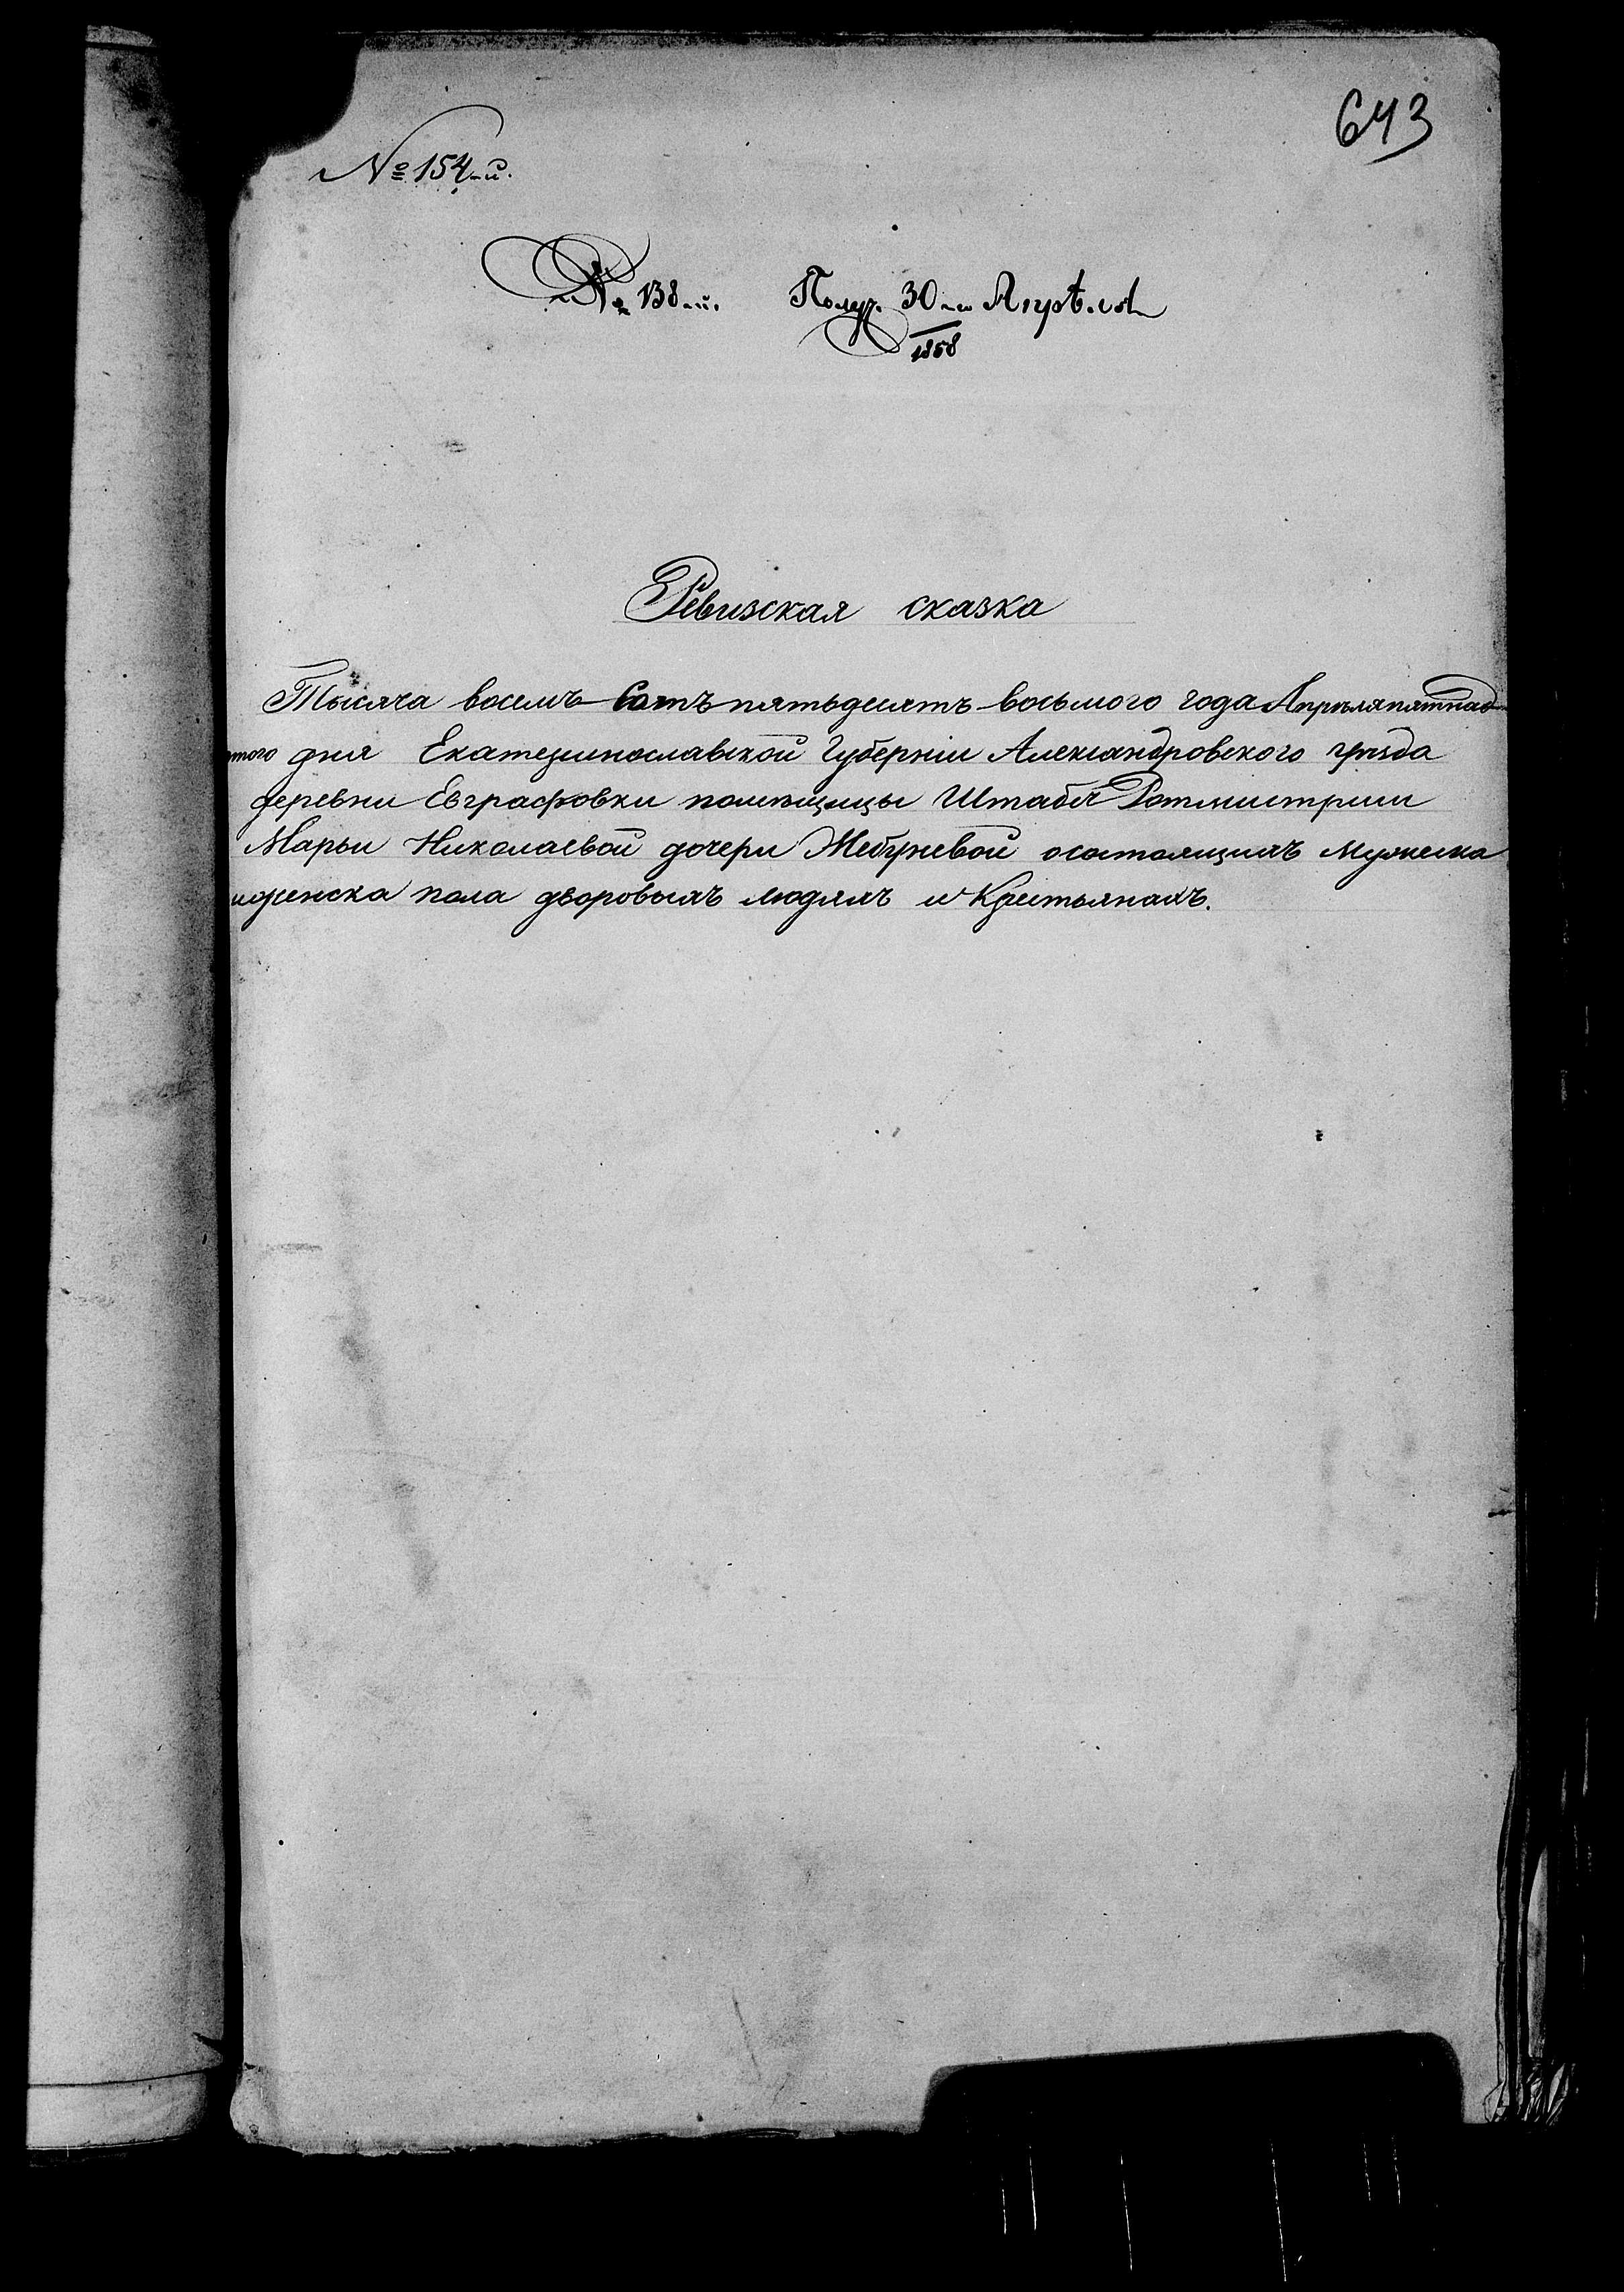 643
№ 154-й.
№ 138-й. Получ. 30-го Апрѣля
1858
Ревизская сказка
Тысяча восемъ Сотъ пятьдесятъ восьмого года Апрѣля пятнад
того дня Екатеринославской Губерніи Александровского уѣзда
деревни Евграфовки помѣщицы Штабсъ Ротмистрши
Марьи Николаевой дочери осостоящихъ мужеска
иженска пола дворовыхъ людяхъ и Крестьянахъ.